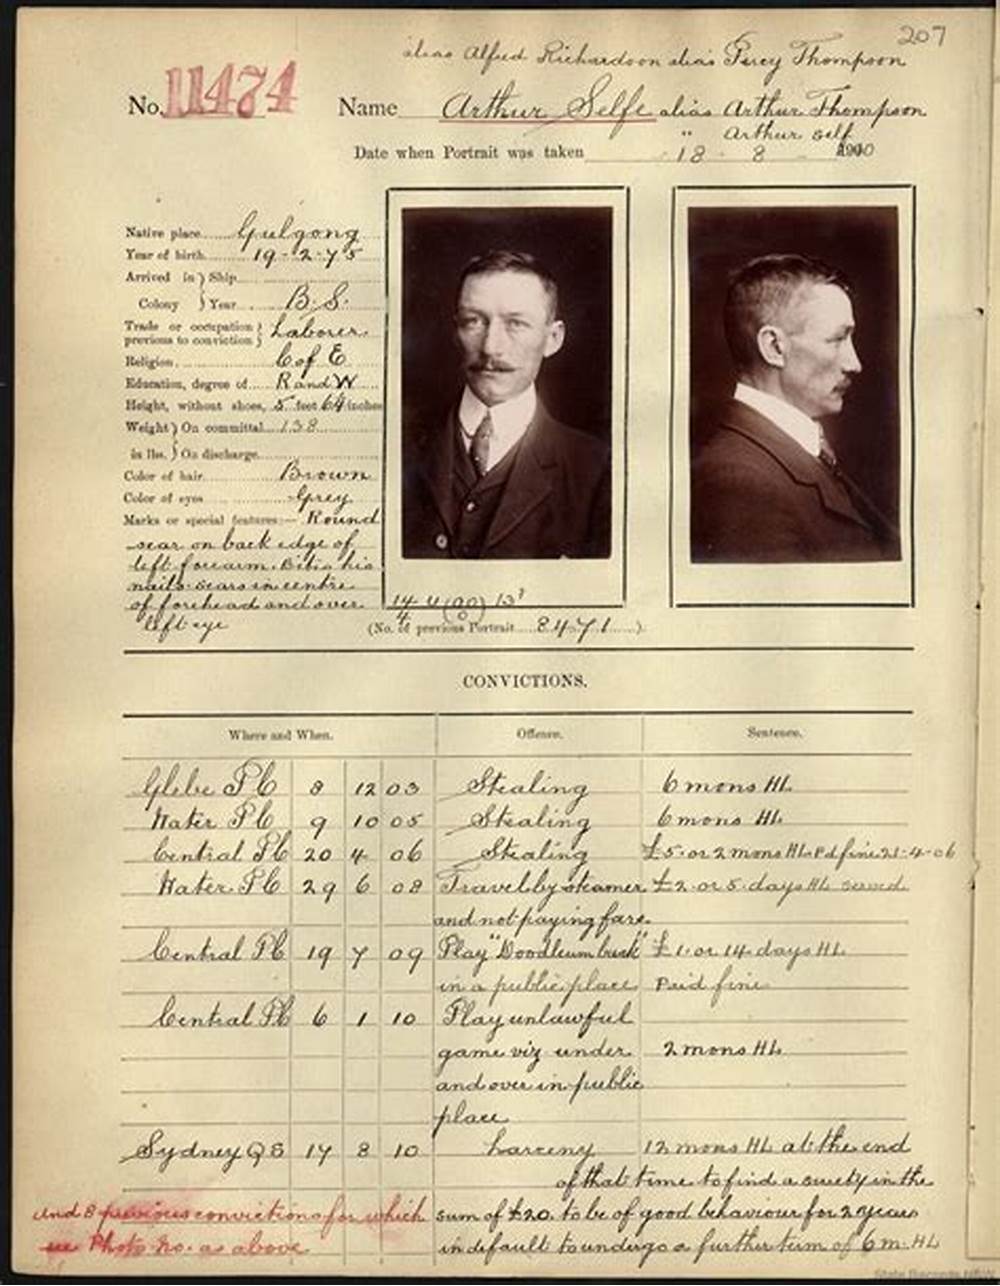 207
alias Alfred Richardson alias Percy Thompson
No. 11474 Name Arthur Selfe alias Arthur Thompson
" Arthur Self
Date when Portrait was taken 18 - 8 - 1910
Native place Gulgong
Year of birth 19-2-75
Arrived in } Ship
Colony } Year B.S.
Trade or occupation } Laborer
previous to conviction }
Religion C of E
Education, degree of R and W
Height, without shoes, 5 feet 6¼ inches
Weight } On committal 138
in lbs. } On discharge
Color of hair Brown
Color of eyes Grey
Marks or special features:— Round
scar on back edge of
left forearm. Bites his
nails. scars in centre
of forehead and over
left eye
(No. of previous Portrait 8471)
CONVICTIONS.
Where and When. Offence. Sentence.
Glebe PC 8 12 03 Stealing 6 mons HL
Water PC 9 10 05 Stealing 6 mons HL
Central PC 20 4 06 Stealing £5 or 2 mons HL Pd fine 21-4-06
Water PC 29 6 08 Travel by steamer £2 or 5 days HL served
and not paying fare.
Central PC 19 7 09 Play "Doodleumbuck" £1 or 14 days HL
in a public place Paid fine
Central PC 6 1 10 Play unlawful
game viz under 2 mons HL
and over in public
place
Sydney QS 17 8 10 Larceny 12 mons HL at the end
of that time to find a surety in the
and 8 previous convictions for which sum of £20. to be of good behaviour for 2 years
see Photo No. as above in default to undergo a further term of 6 m. HL
State Records NSW